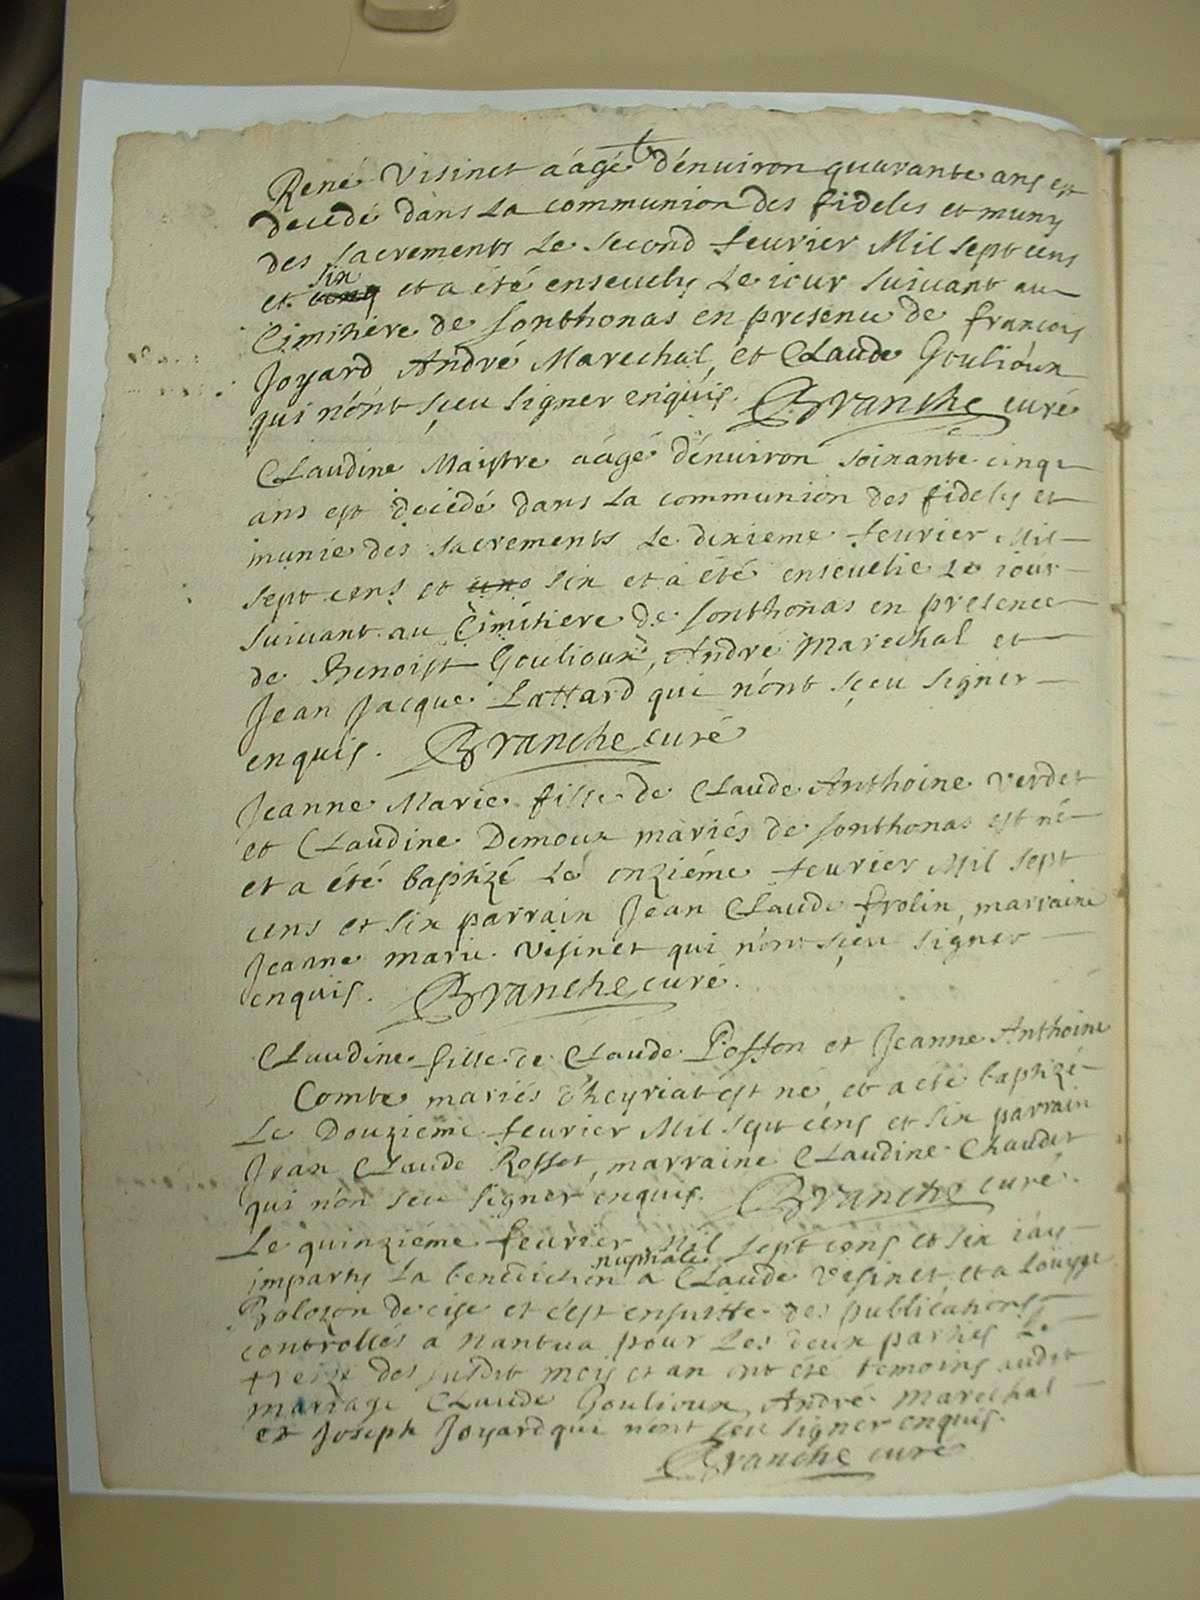 René Visinet aâgé d'enuiron quarante ans est
decedé dans La communion des fideles et muny
des sacrements Le second feurier Mil sept cens
et cinq six et a été enseuely Le iour suiuant au
Cimitiere de Sonthonas en presence de francois
Joyard André Marechal, et Claude Goulioux
qui n'ont sçeu signer enquis. Branche curé
Claudine Maistre aâgé d'enuiron soixante cinq
ans est decedé dans La communion des fideles et
munie des sacrements Le dixieme feurier Mil
sept cens et cinq six et a été enseuelie Le iour
suiuant au Cimitiere de Sonthonas en presence
de Benoist Goulioux, André Marechal et
Jean Jacque Lattard qui n'ont sçeu signer
enquis. Branche curé
Jeanne Marie fille de Claude Anthoine Verdet
et Claudine Demoux mariés de Sonthonas est né
et a été baptizé Le onziéme feurier Mil sept
cens et six parrain Jean Claude frolin, marraine
Jeanne marie Visinet qui n'ont sçeu signer
enquis. Branche curé.
Claudine fille de Claude Posson et Jeanne Anthoine
Combe mariés d'heyriat est né, et a été baptizé
Le Douzieme feurier Mil sept cens et six parrain
Jean Claude Rosset, marraine Claudine Chaudet
qui n'on sceu signer enquis. Branche curé.
Le quinziéme feurier Mil sept cens et six iay
imparty La benediction nuptiale a Claude Visinet et a Loüyse
Bolozon de cise et c'est ensuitte des publications
controllés a Nantua pour Les deux parties Le
treize des susdit mois et an ont été temoins audit
mariage Claude Goulioux, André Marechal
et Joseph Joyard qui n'ont sceu signer enquis.
Branche curé